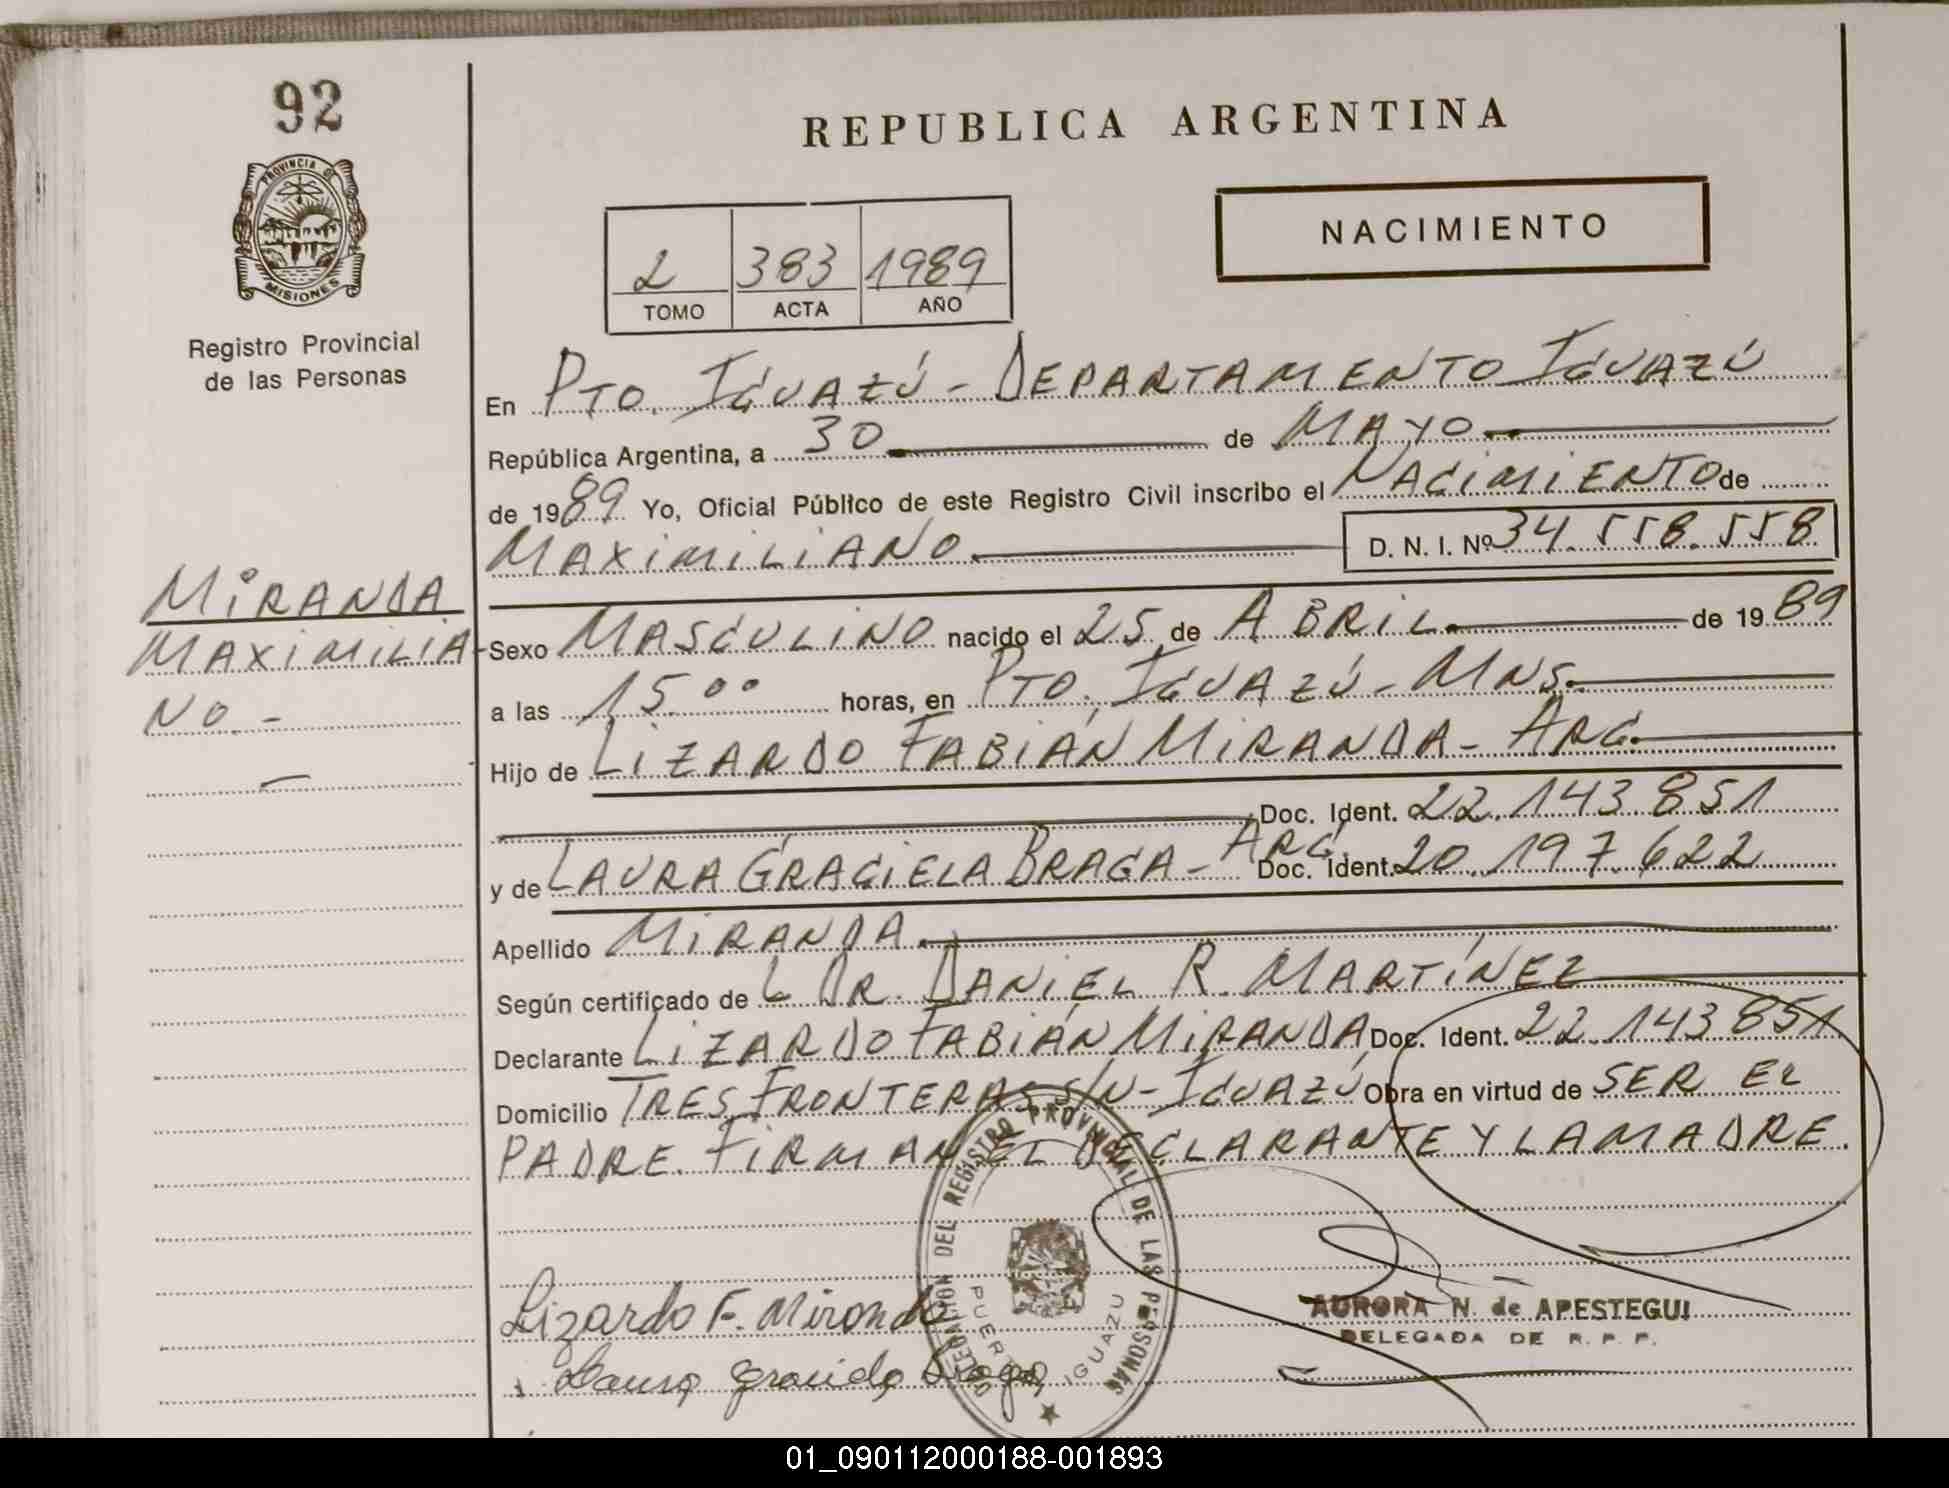 92
REPUBLICA ARGENTINA
PROVINCIA D
MISIONES
Registro Provincial
de las Personas
2 383 1989
TOMO ACTA AÑO
NACIMIENTO
En PTO. IGUAZÚ - DEPARTAMENTO IGUAZÚ
República Argentina, a 30 de MAYO
de 1989 Yo, Oficial Público de este Registro Civil inscribo el NACIMIENTO de
MAXIMILIANO D. N. I. Nº 34.558.558
MIRANDA
MAXIMILIA
NO.-
Sexo MASCULINO nacido el 25 de ABRIL de 1989
a las 15.00 horas, en PTO. IGUAZÚ - MNS.
Hijo de LIZARDO FABIÁN MIRANDA - ARG.
Doc. Ident. 22.143.851
y de LAURA GRACIELA BRAGA - ARG. Doc. Ident. 20.197.622
Apellido MIRANDA
Según certificado de L DR. DANIEL R. MARTÍNEZ
Declarante LIZARDO FABIÁN MIRANDA Doc. Ident. 22.143.851
Domicilio TRES FRONTERAS S/N - IGUAZÚ Obra en virtud de SER EL
PADRE. FIRMAN EL DECLARANTE Y LA MADRE.
DELEGACION DEL REGISTRO PROVINCIAL DE LAS PERSONAS
PUERTO IGUAZU
Lizardo F. Miranda
Laura Graciela Braga
AURORA N. de APESTEGUI
DELEGADA DE R. P. P.
01_090112000188-001893